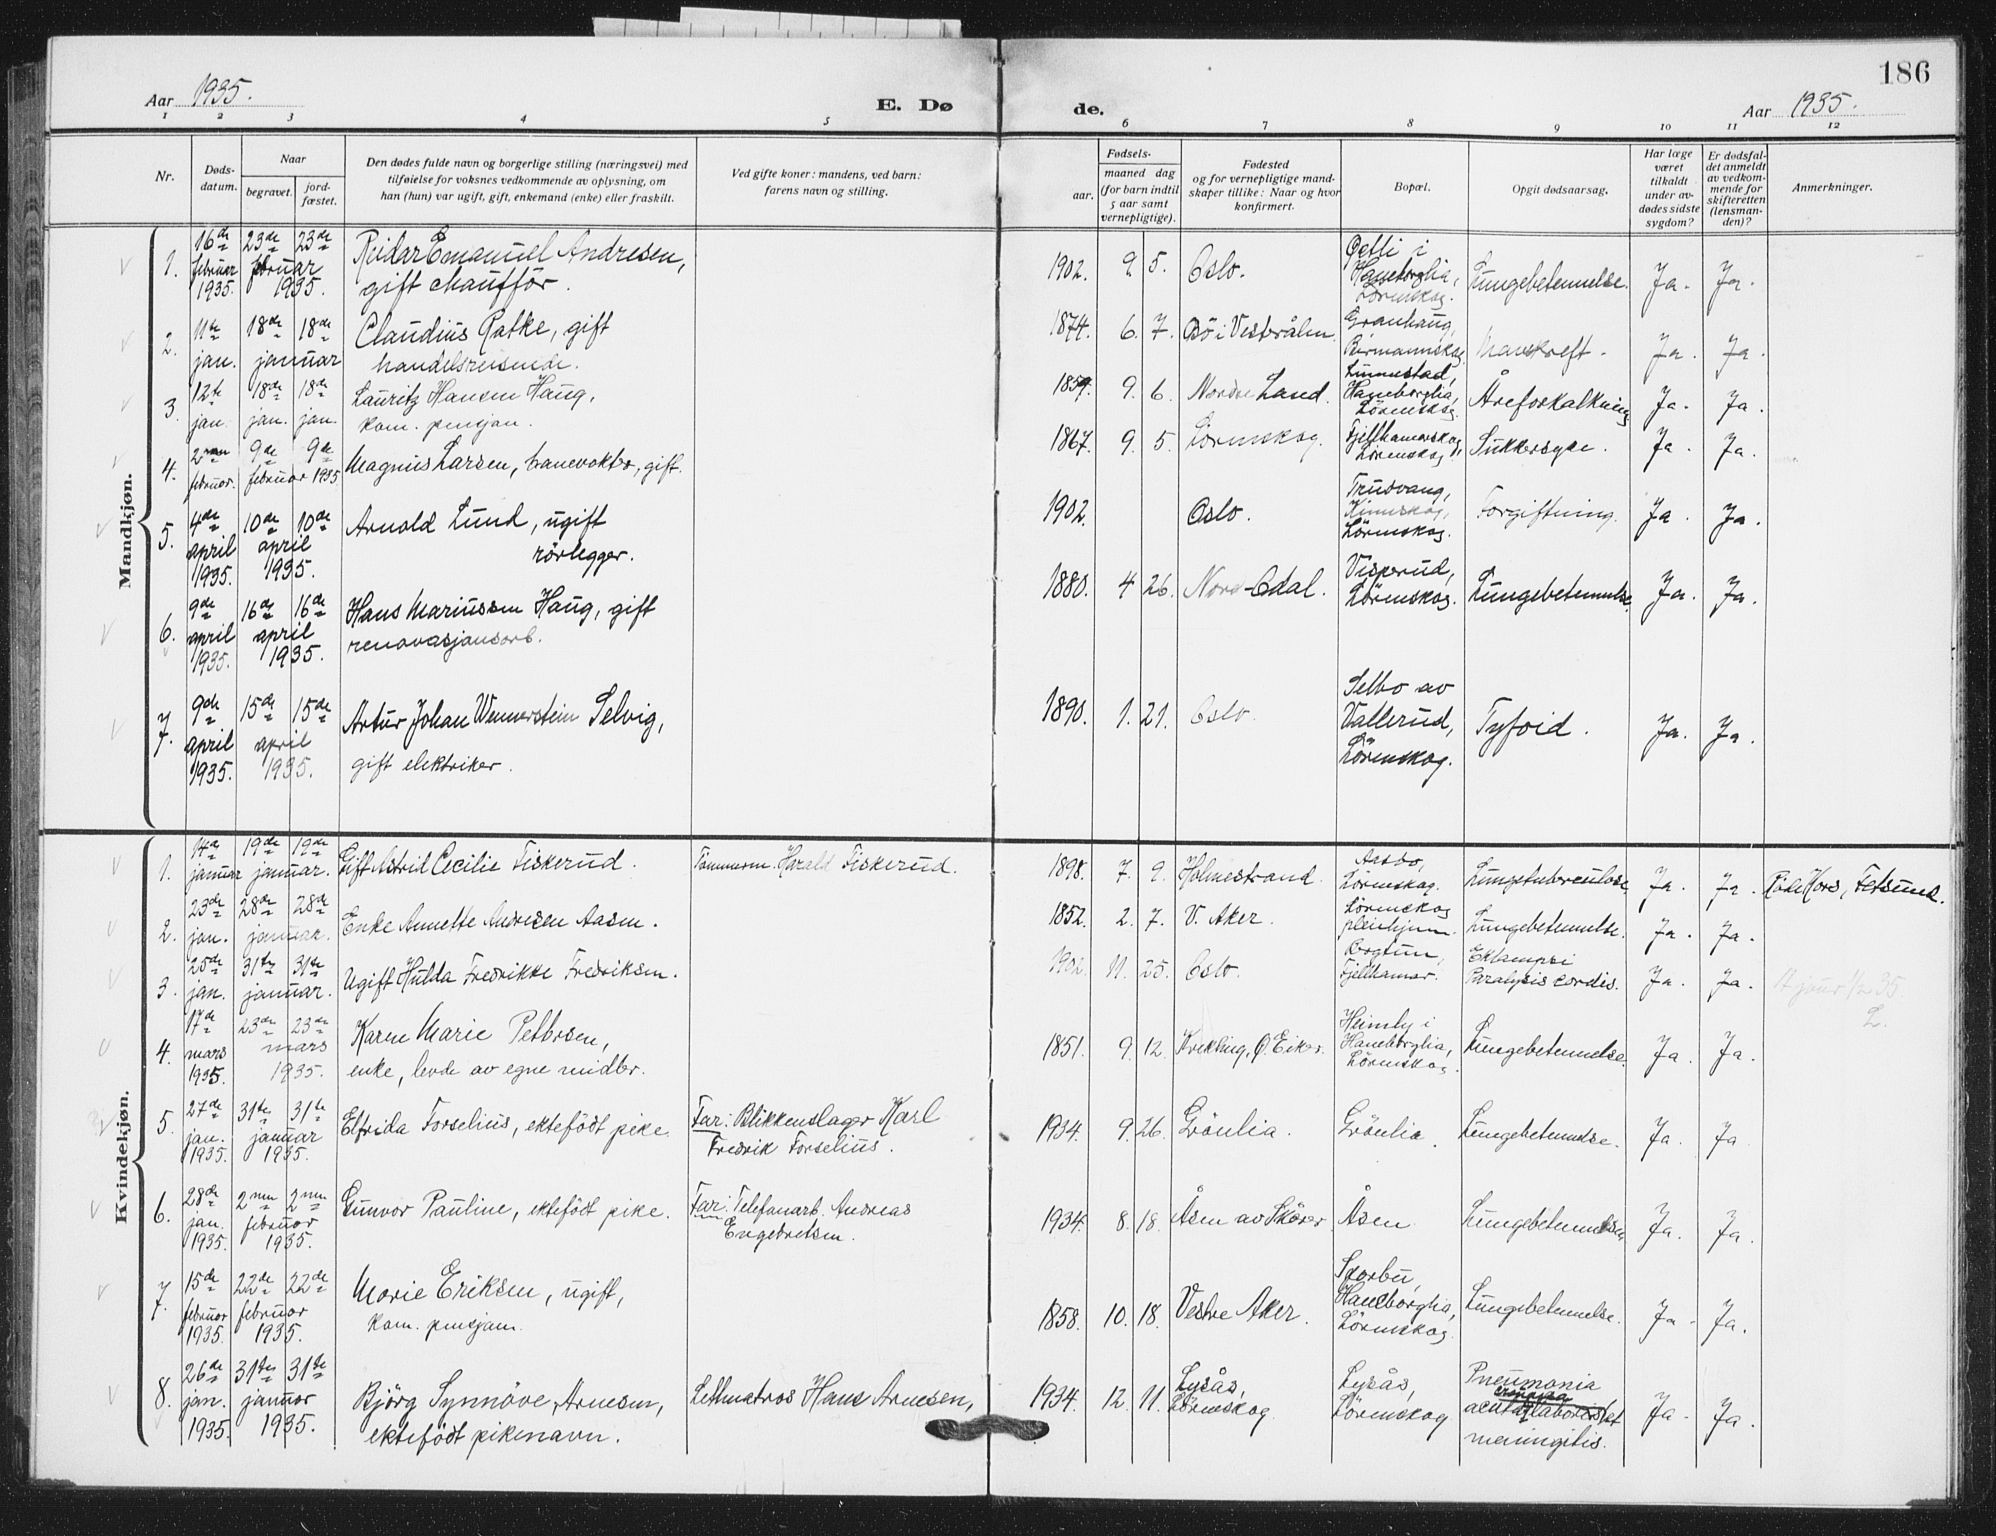 186
Aar 1935.
E. Døde.
Aar 1935.
1 2 3 4 5 6 7 8 9 10 11 12
Nr.
Døds-
datum.
Naar
begravet.
jord-
fæstet.
Den dødes fulde navn og borgerlige stilling (næringsvei) med
tilføielse for voksnes vedkommende av oplysning, om
han (hun) var ugift, gift, enkemand (enke) eller fraskilt.
Ved gifte koner: mandens, ved barn:
farens navn og stilling.
Fødsels-
aar. maaned dag
(for barn indtil
5 aar samt
vernepligtige).
Fødested
og for vernepligtige mand-
skaper tillike: Naar og hvor
konfirmert.
Bopæl.
Opgit dødsaarsag.
Har læge
været
tilkaldt
under av-
dødes sidste
sygdom?
Er dødsfal-
det anmeldt
av vedkom-
mende for
skifteretten
(lensman-
den)?
Anmerkninger.
Mandkjøn.
1. 16de februar 1935. 23de 23de februar 1935. Reidar Emanuel Andresen,
gift chaufför.
1902. 9. 5. Oslo. i
Haneborglia,
Lörenskog. Lungebetennelse. Ja. Ja.
2. 11te jan. 18de 18de januar Claudius Ratke, gift
handelsreisende.
1874. 6. 7. Bö i Vesterålen. Granhaug,
Mavekreft. Ja. Ja.
3. 12te jan. 18de jan. 18de jan. Lauritz Hansen Haug,
kom. pensjon.
1859. 9. 6. Nordre Land. Linnestad,
Haneborglia,
Lörenskog. Åreforkalkning Ja. Ja.
4. 2nen februar. 9de 9de februar 1935 Magnus Larsen, banevokter, gift.
1867. 9. 5. Lörenskog. Fjellhamarskog,
Lörenskog. Sukkersyke. Ja. Ja.
5. 4de april 1935. 10de 10de april 1935. Arnold Lund, ugift
rörlegger.
1902. Oslo. Trudvang,
Lörenskog. Forgiftning. Ja. Ja.
6. 9de april 1935. 16de 16de april 1935. Hans Mariussen Haug, gift
renovasjonsarb.
1880. 4 26. Nord-Odal. Visperud,
Lörenskog. Lungebetennelse. Ja. Ja.
7. 9de april 1935. 15de 15de april 1935. Artur Johan Wennerstein Selvig,
gift elektriker.
1890. 1. 21. Oslo. Selbo av
Vallerud,
Lörenskog. Tyfoid. Ja. Ja.
Kvindekjøn.
1. 14de januar 19de 19de januar. Gift Astrid Cecilie Fiskerud. Tömmerm. Harald Fiskerud.
1898. 7. 9. Holmestrand. Aasbo,
Lörenskog. Lungetuberculose Ja. Ja. Röde Kors, Fetsund.
2. 23de jan. 28de 28de januar. Enke Annette Andresen Aasen.
1852. 2. 7. V. Aker. Lörenskog
pleiehjem. Lungebetennelse. Ja. Ja.
3. 25de jan. 31te 31te januar. Ugift Hulda Fredrikke Fredriksen.
1902. 11. 25. Oslo. Bogtun,
Fjellhamar. Eklampsi
Paralysis cordis. Ja. Ja. 1/2 35.
L.
4. 17de mars 1935. 23de 23de mars 1935. Karen Marie Pettersen,
enke, levde av egne midler.
1851. 9. 12. Ø. Eiker. Heimly i
Haneborglia,
Lörenskog. Lungebetennelse. Ja. Ja.
5. 27de jan. 1935. 31te 31te januar 1935. Elfrida Forselius, ektefödt pike. Far: Blikkenslager Karl
Fredrik Forselius.
1934. 9. 26. Grönlia. Grönlia. Lungebetennelse. Ja. Ja
6. 28de jan. 1935. 2nen 2nen februar 1935. Gunvor Pauline, ektefödt pike. Far: Telefonarb. Andreas
Engebretsen.
1934. 8. 18. Åsen av Skårer. Åsen. Lungebetennelse Ja. Ja.
7. 15de februar 1935. 22de 22de februar 1935. Marie Eriksen, ugift,
kom. pensjon.
1858. 10. 18. Vestre Aker. Skorbu,
Haneborglia,
Lörenskog. Lungebetennelse. Ja. Ja.
8. 26de jan. 1935. 31te 31te januar 1935. Björg Synnöve Arnesen,
ektefödt pikenavn. Lettmatros Hans Arnesen,
1934. 12. 11. Lysås,
Lörenskog. Lysås,
Lörenskog Pneumonia
acuta et
meningitis. Ja. Ja.